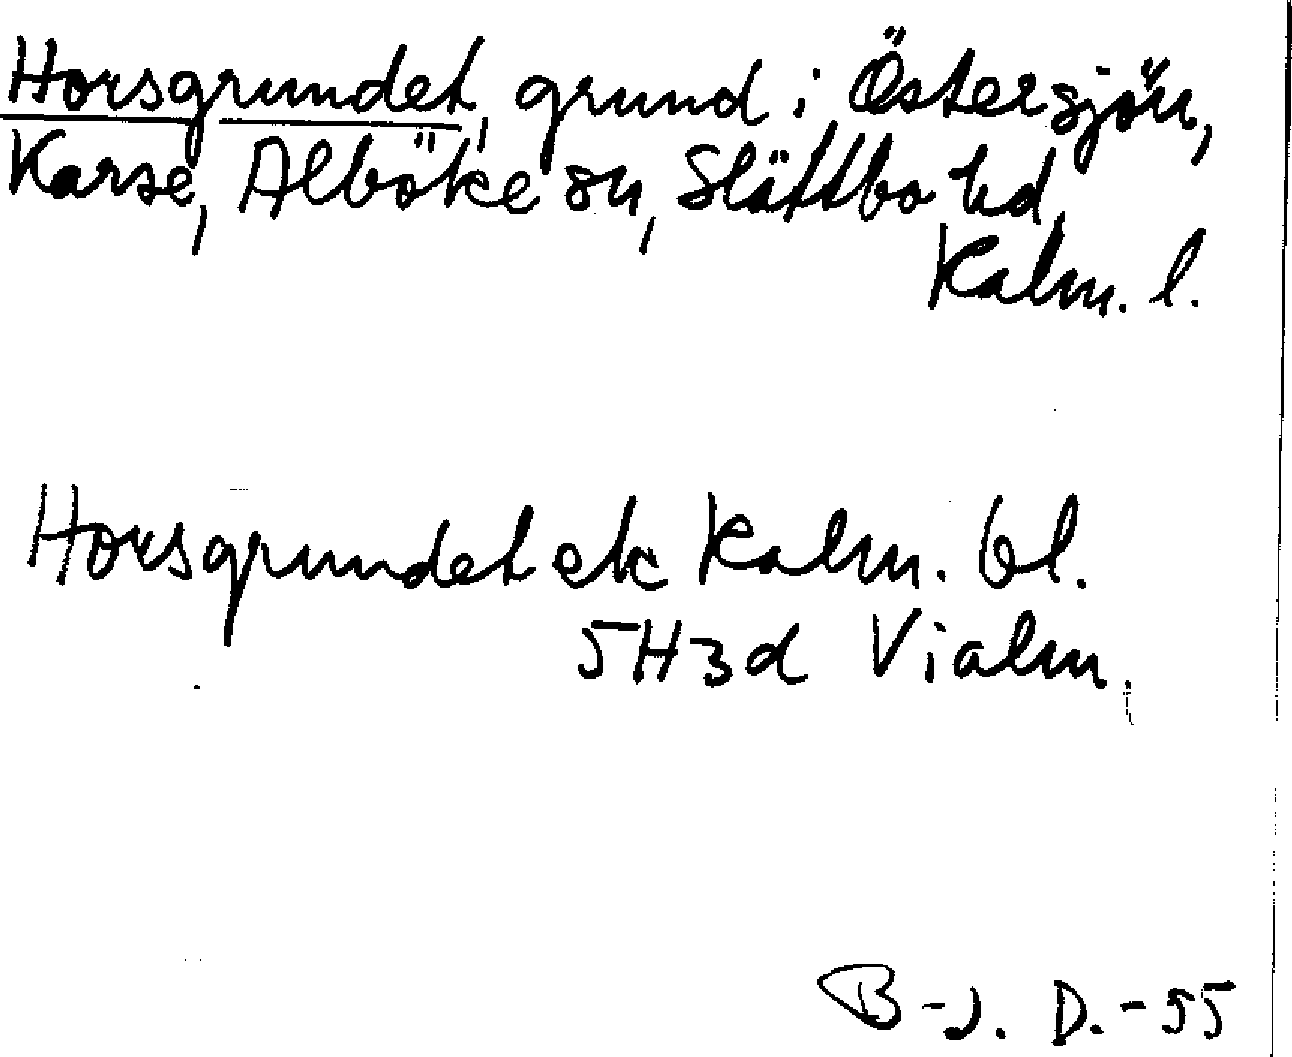 Horsgrundet, grund i Östersjön,
Karse, Alböke sn, Slättbo hd,
Kalm. l.
Horsgrundet ek Kalm. bl.
5H3d Vialm.
B-J. D.-55